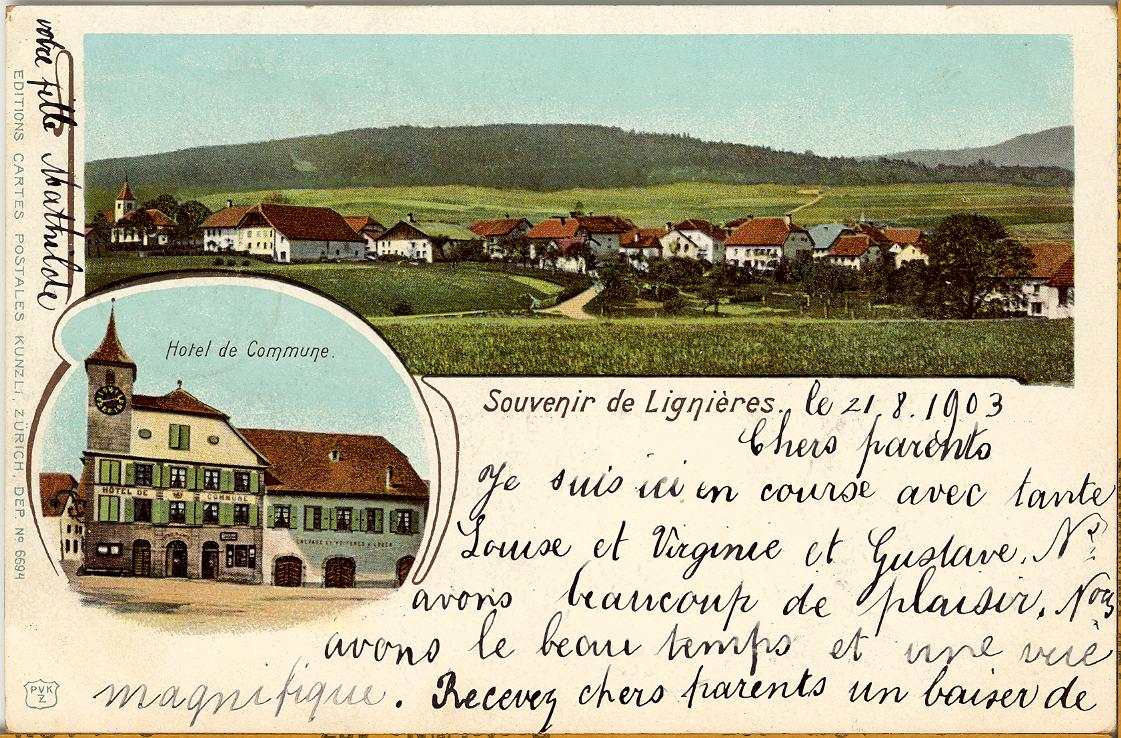 Hotel de Commune.
HÔTEL DE COMMUNE
CHEVAUX ET VOITURES À LOUER
Souvenir de Lignières. le 21. 8. 1903
Chers parents
Je suis ici en course avec tante
Louise et Virginie et Gustave. Ns
avons beaucoup de plaisir. Nous
avons le beau temps et une vue
magnifique. Recevez chers parents un baiser de
votre fille Mathilde
EDITIONS CARTES POSTALES KUNZLI, ZÜRICH, DEP. No 6694
PVK
Z